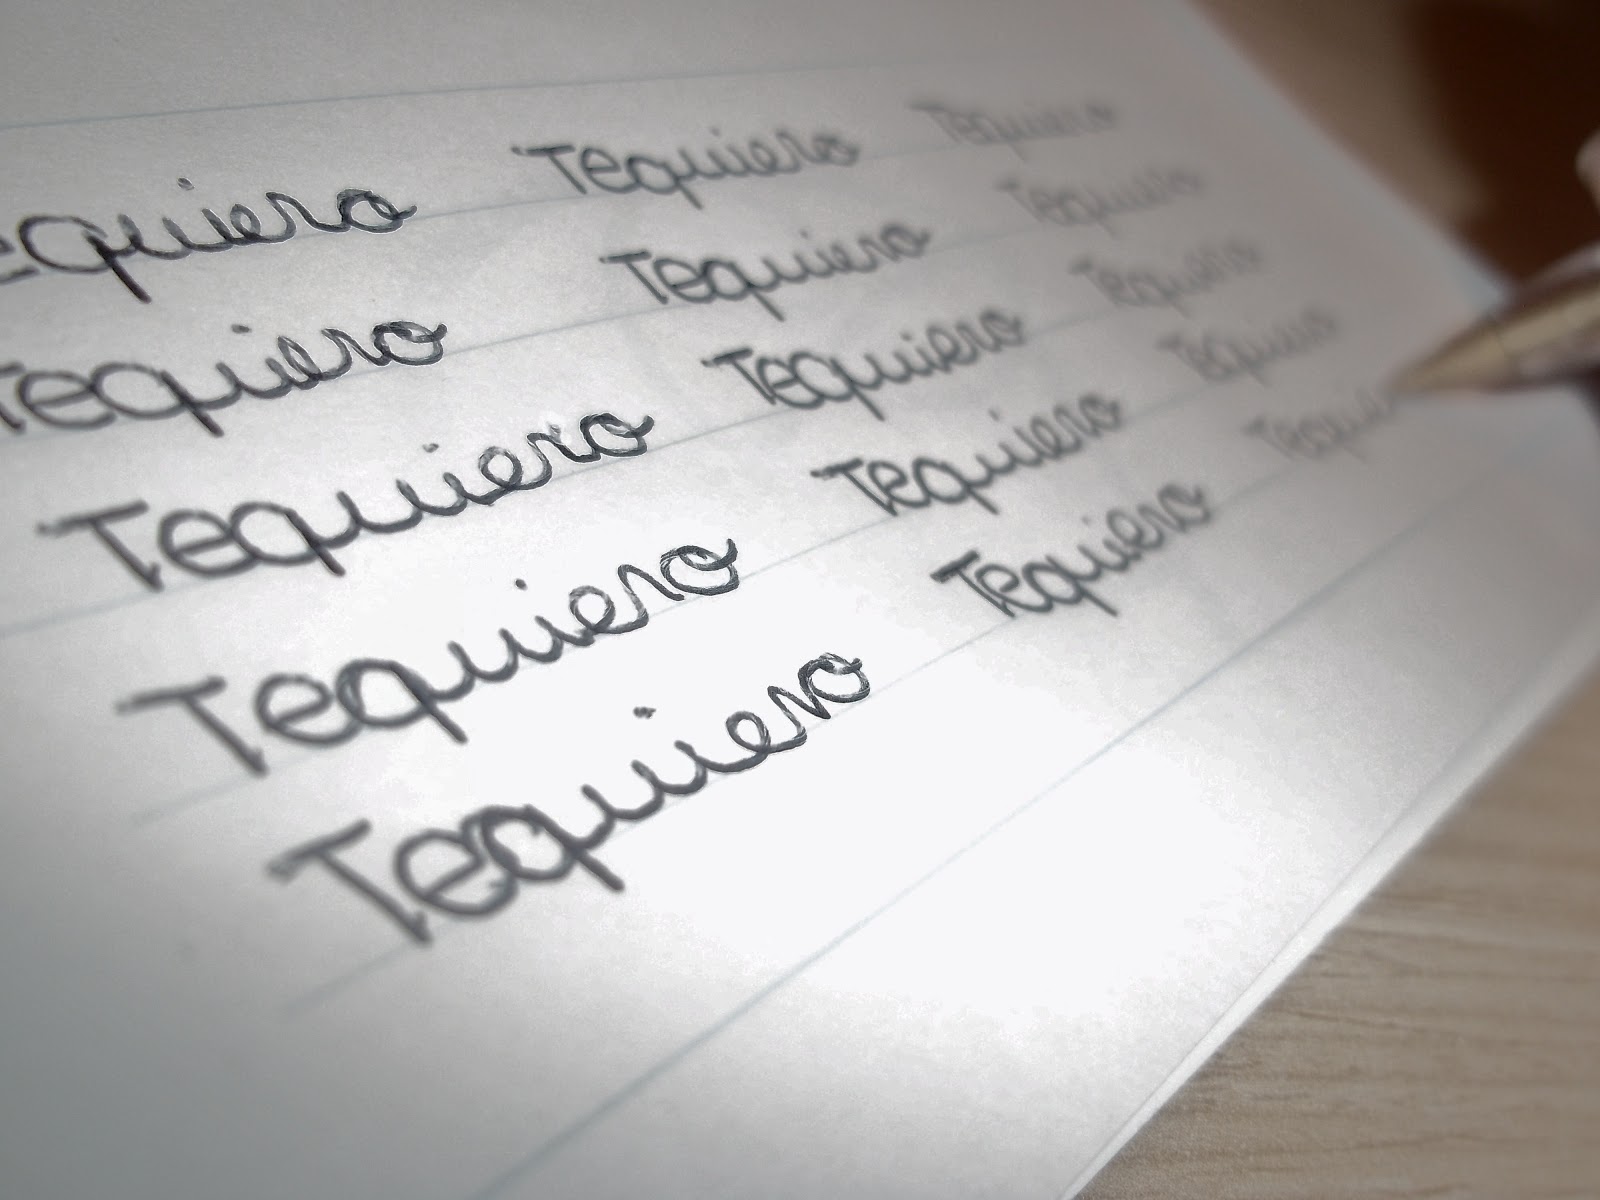 equiero Tequiero Tequiero
Tequiero Tequiero Tequiero
Tequiero Tequiero Tequiero
Tequiero Tequiero Tequiero
Tequiero Tequiero Tequie